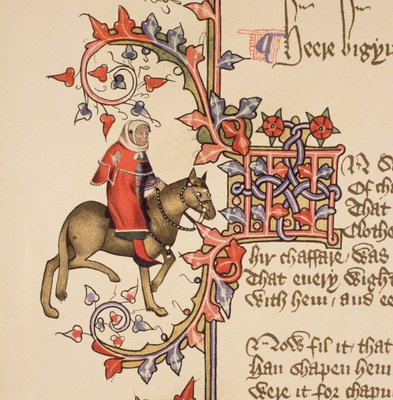 Heere bigyn
IN S
Of cha
That
Clothe
Hir chaffare / was
That euery wight
With hem / and ee
Now fil it / that
Han shapen hem
Were it for chapm